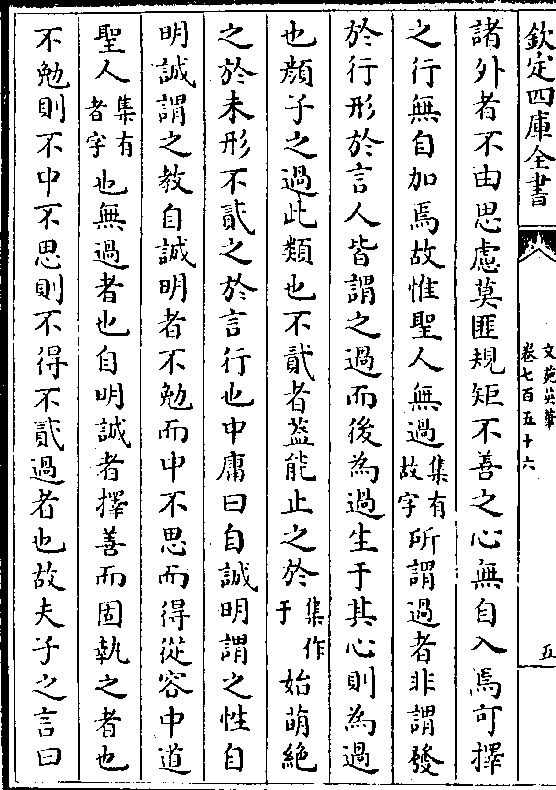 欽定四庫全書
文苑英華
卷七百五十六
五
諸外者不由思慮莫匪規矩不善之心無自入焉可擇
之行無自加焉故惟聖人無過集有故字所謂過者非謂發
於行形於言人皆謂之過而後為過生于其心則為過
也顔子之過此類也不貳者葢能止之於集作于始萌絶
之於未形不貳之於言行也中庸曰自誠明謂之性自
明誠謂之教自誠明者不勉而中不思而得從容中道
聖人集有者字也無過者也自明誠者擇善而固執之者也
不勉則不中不思則不得不貳過者也故夫子之言曰